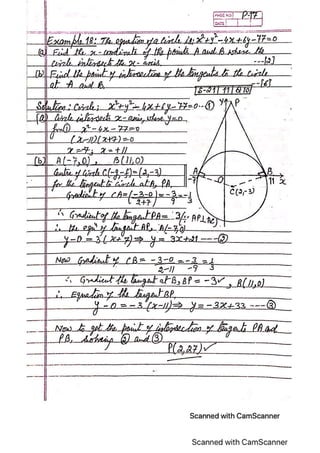 PAGE NO. P-17
DATE
Example 18: The equation of a circle is x²+y²-4x+6y-77=0
(a) Find the x-coordinate of the points A and B where the
circle intersects the x-axis. ---[2]
(b) Find the point of intersection of the tangents to the circle
at A and B ---[6]
[S-21/11/Q10]
Solution: Circle; x²+y²-4x+6y-77=0--①
(a) Circle intersects x-axis, where y=0
from① x²-4x-77=0
(x-11)(x+7)=0
x=-7; x=+11
(b) A(-7,0), B(11,0)
Centre of circle C(-g,-f)=(2,-3)
for the tangent to circle at A, PA
Gradient of CA = (-3-0)/(2+7) = -3/9 = -1/3
∴ Gradient of the tangent PA = 3
∴ the eqn of tangent AP, A(-7,0)
y-0=3(x+7) ⇒ y = 3x+21 ---②
Now Gradient of CB = -3-0/2-11 = -3/-9 = 1/3
∴ Gradient of the tangent at B, BP = -3, B(11,0)
∴ Equation of the tangent BP.
y-0 = -3(x-11) ⇒ y = -3x+33 ---③
Now to get the point of intersection of tangents PA and
PB, solving ② and ③
P(2,27)
y
P
A
-7
B
11
x
C(2,-3)
Scanned with CamScanner
Scanned with CamScanner